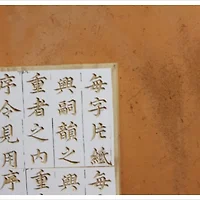 每字片紙每
興嗣韻之興
重者之內重
序令見用序